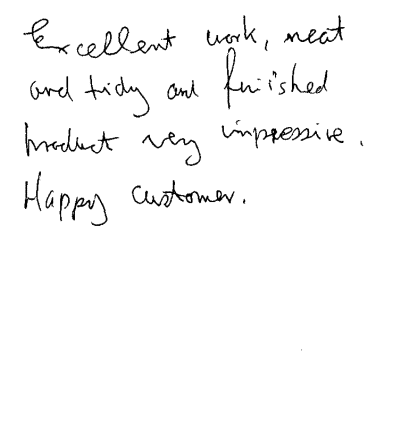 Excellent work, neat
and tidy and finished
product very impressive.
Happy customer.